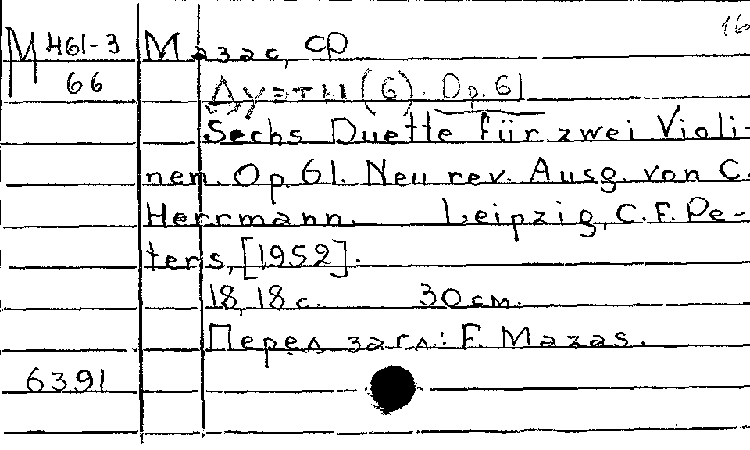 М 461-3 Мазас, Ф
66 Дуэты (6). Op. 61
Sechs Duette für zwei Violi-
nen. Op. 61. Neu rev. Ausg. von C.
Herrmann. Leipzig, C. F. Pe-
ters, [1952].
18, 18 с. 30 см.
Перед загл.: F. Mazas.
6391